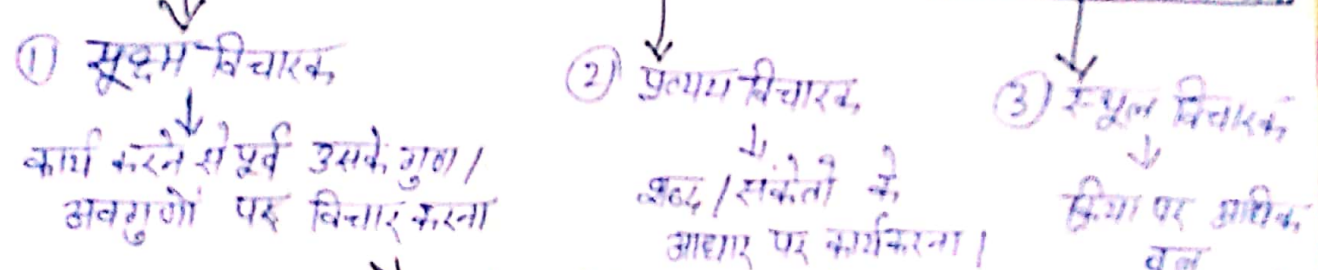 ① सूक्ष्म विचारक
कार्य करने से पूर्व उसके गुण /
अवगुणों पर विचार करना
② प्रत्यय विचारक
शब्द / संकेतो के
आधार पर कार्य करना ।
③ स्थूल विचारक
क्रिया पर अधिक
बल